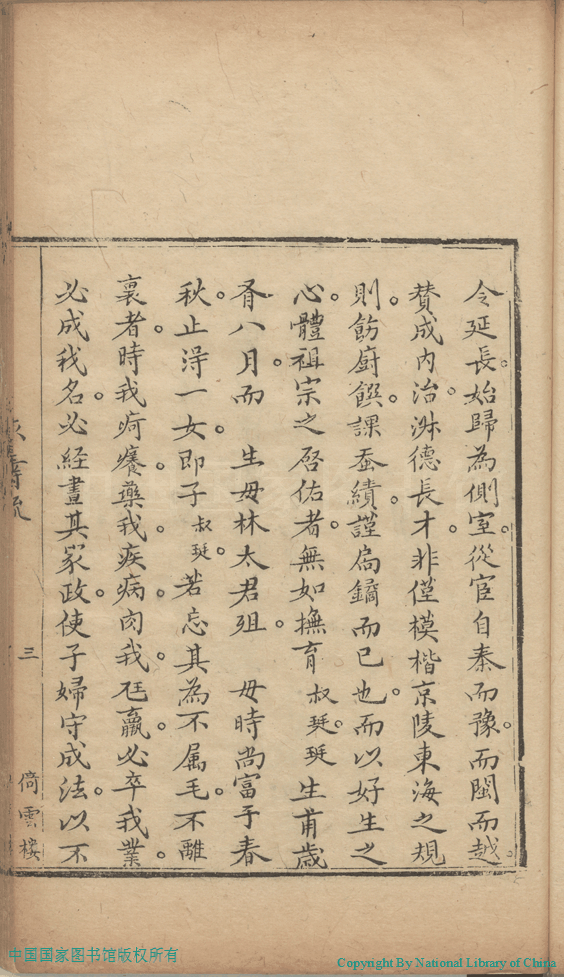 令延長始歸為側室從宦自秦而豫而閩而越
贊成內治淋德長才非僅模楷京陵東海之規
則飭廚饌課蚕績謹扃鐍而已也而以好生之
心體祖宗之啓佑者無如撫育叔珽珽生甫歲
胥八月而 生母林太君殂 母時尚富于春
秋止淂一女即子叔珽若忘其為不属毛不離
裏者時我疴癢藥我疾病肉我尪羸必卒我業
必成我名必經畫其家政使子婦守成法以不
三
倚雲樓
中国国家图书馆版权所有
Copyright By National Library of China